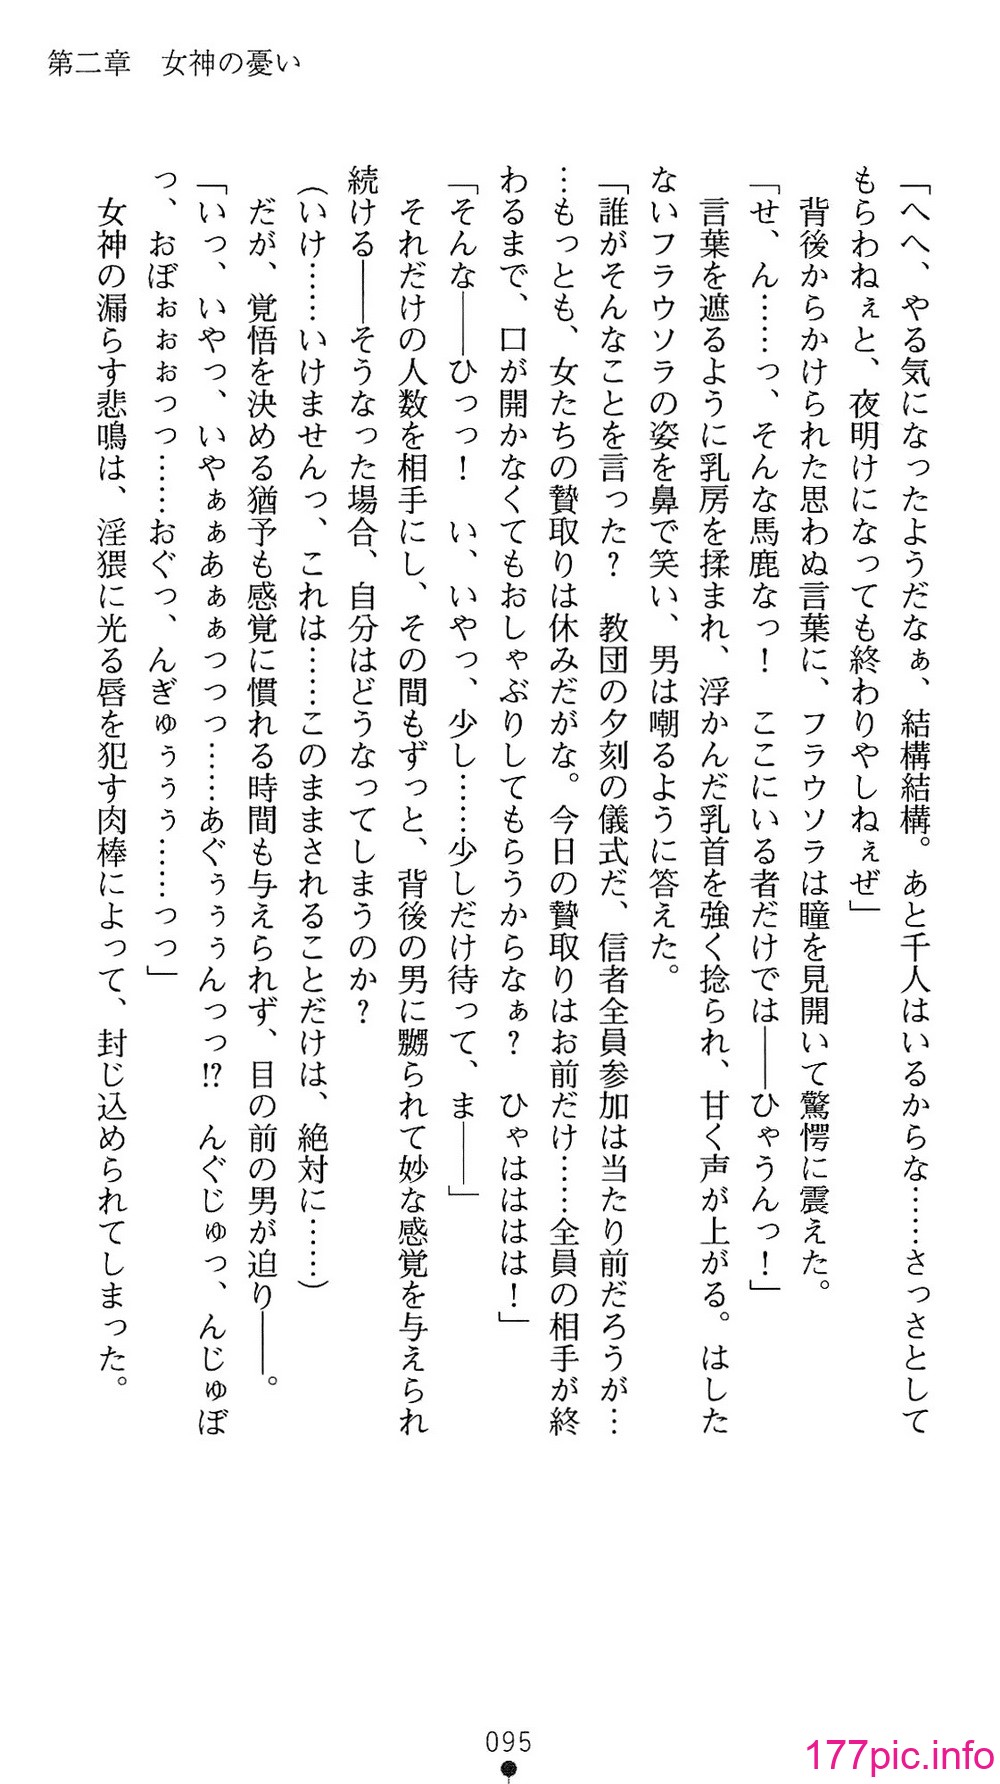 第二章　女神の憂い
「へへ、やる気になったようだなぁ、結構結構。あと千人はいるからな……さっさとして
もらわねぇと、夜明けになっても終わりやしねぇぜ」
　背後からかけられた思わぬ言葉に、フラウソラは瞳を見開いて驚愕に震えた。
「せ、ん……っ、そんな馬鹿なっ！　ここにいる者だけでは――ひゃうんっ！」
　言葉を遮るように乳房を揉まれ、浮かんだ乳首を強く捻られ、甘く声が上がる。はした
ないフラウソラの姿を鼻で笑い、男は嘲るように答えた。
「誰がそんなことを言った？　教団の夕刻の儀式だ、信者全員参加は当たり前だろうが…
…もっとも、女たちの贄取りは休みだがな。今日の贄取りはお前だけ……全員の相手が終
わるまで、口が開かなくてもおしゃぶりしてもらうからなぁ？　ひゃはははは！」
「そんな――ひっっ！　い、いやっ、少し……少しだけ待って、ま――」
　それだけの人数を相手にし、その間もずっと、背後の男に嬲られて妙な感覚を与えられ
続ける――そうなった場合、自分はどうなってしまうのか？
（いけ……いけませんっ、これは……このままされることだけは、絶対に……）
　だが、覚悟を決める猶予も感覚に慣れる時間も与えられず、目の前の男が迫り――。
「いっ、いやっ、いやぁぁあぁぁっっっ……あぐぅぅぅんっっ!?　んぐじゅっ、んじゅぼ
っ、おぼぉぉぉっっ……おぐっ、んぎゅぅぅぅ……っっ」
　女神の漏らす悲鳴は、淫猥に光る唇を犯す肉棒によって、封じ込められてしまった。
095
177pic.info